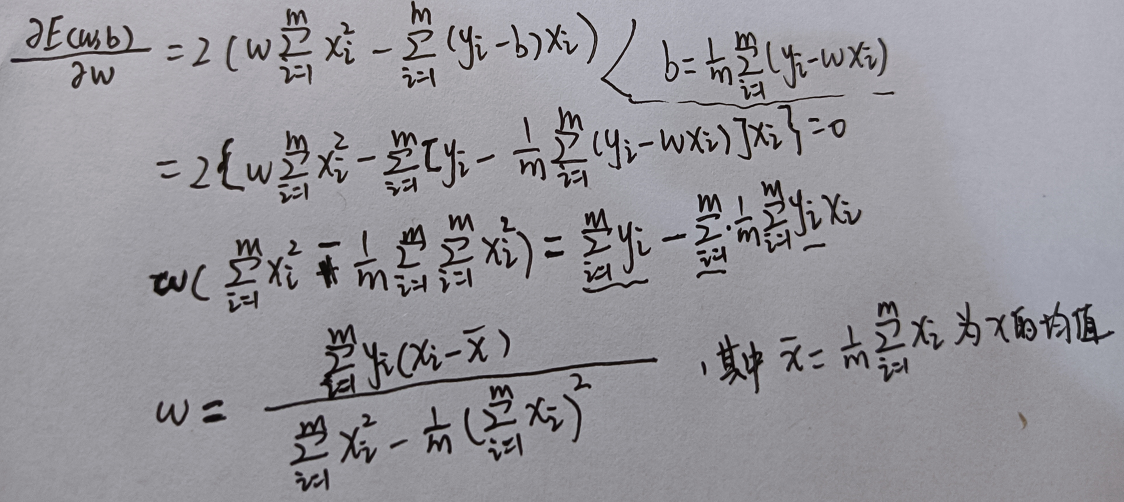 ∂E(w,b)/∂w = 2(w∑_{i=1}^{m} x_i^2 − ∑_{i=1}^{m}(y_i−b)x_i) < b = 1/m ∑_{i=1}^{m}(y_i−wx_i)
= 2{w∑_{i=1}^{m} x_i^2 − ∑_{i=1}^{m}[y_i − 1/m ∑_{i=1}^{m}(y_i−wx_i)]x_i} = 0
w(∑_{i=1}^{m} x_i^2 − 1/m ∑_{i=1}^{m} ∑_{i=1}^{m} x_i^2) = ∑_{i=1}^{m} y_i − ∑_{i=1}^{m} · 1/m ∑_{i=1}^{m} y_i x_i
w = ∑_{i=1}^{m} y_i(x_i−x̄) / (∑_{i=1}^{m} x_i^2 − 1/m (∑_{i=1}^{m} x_i)^2) ,其中 x̄ = 1/m ∑_{i=1}^{m} x_i 为x的均值